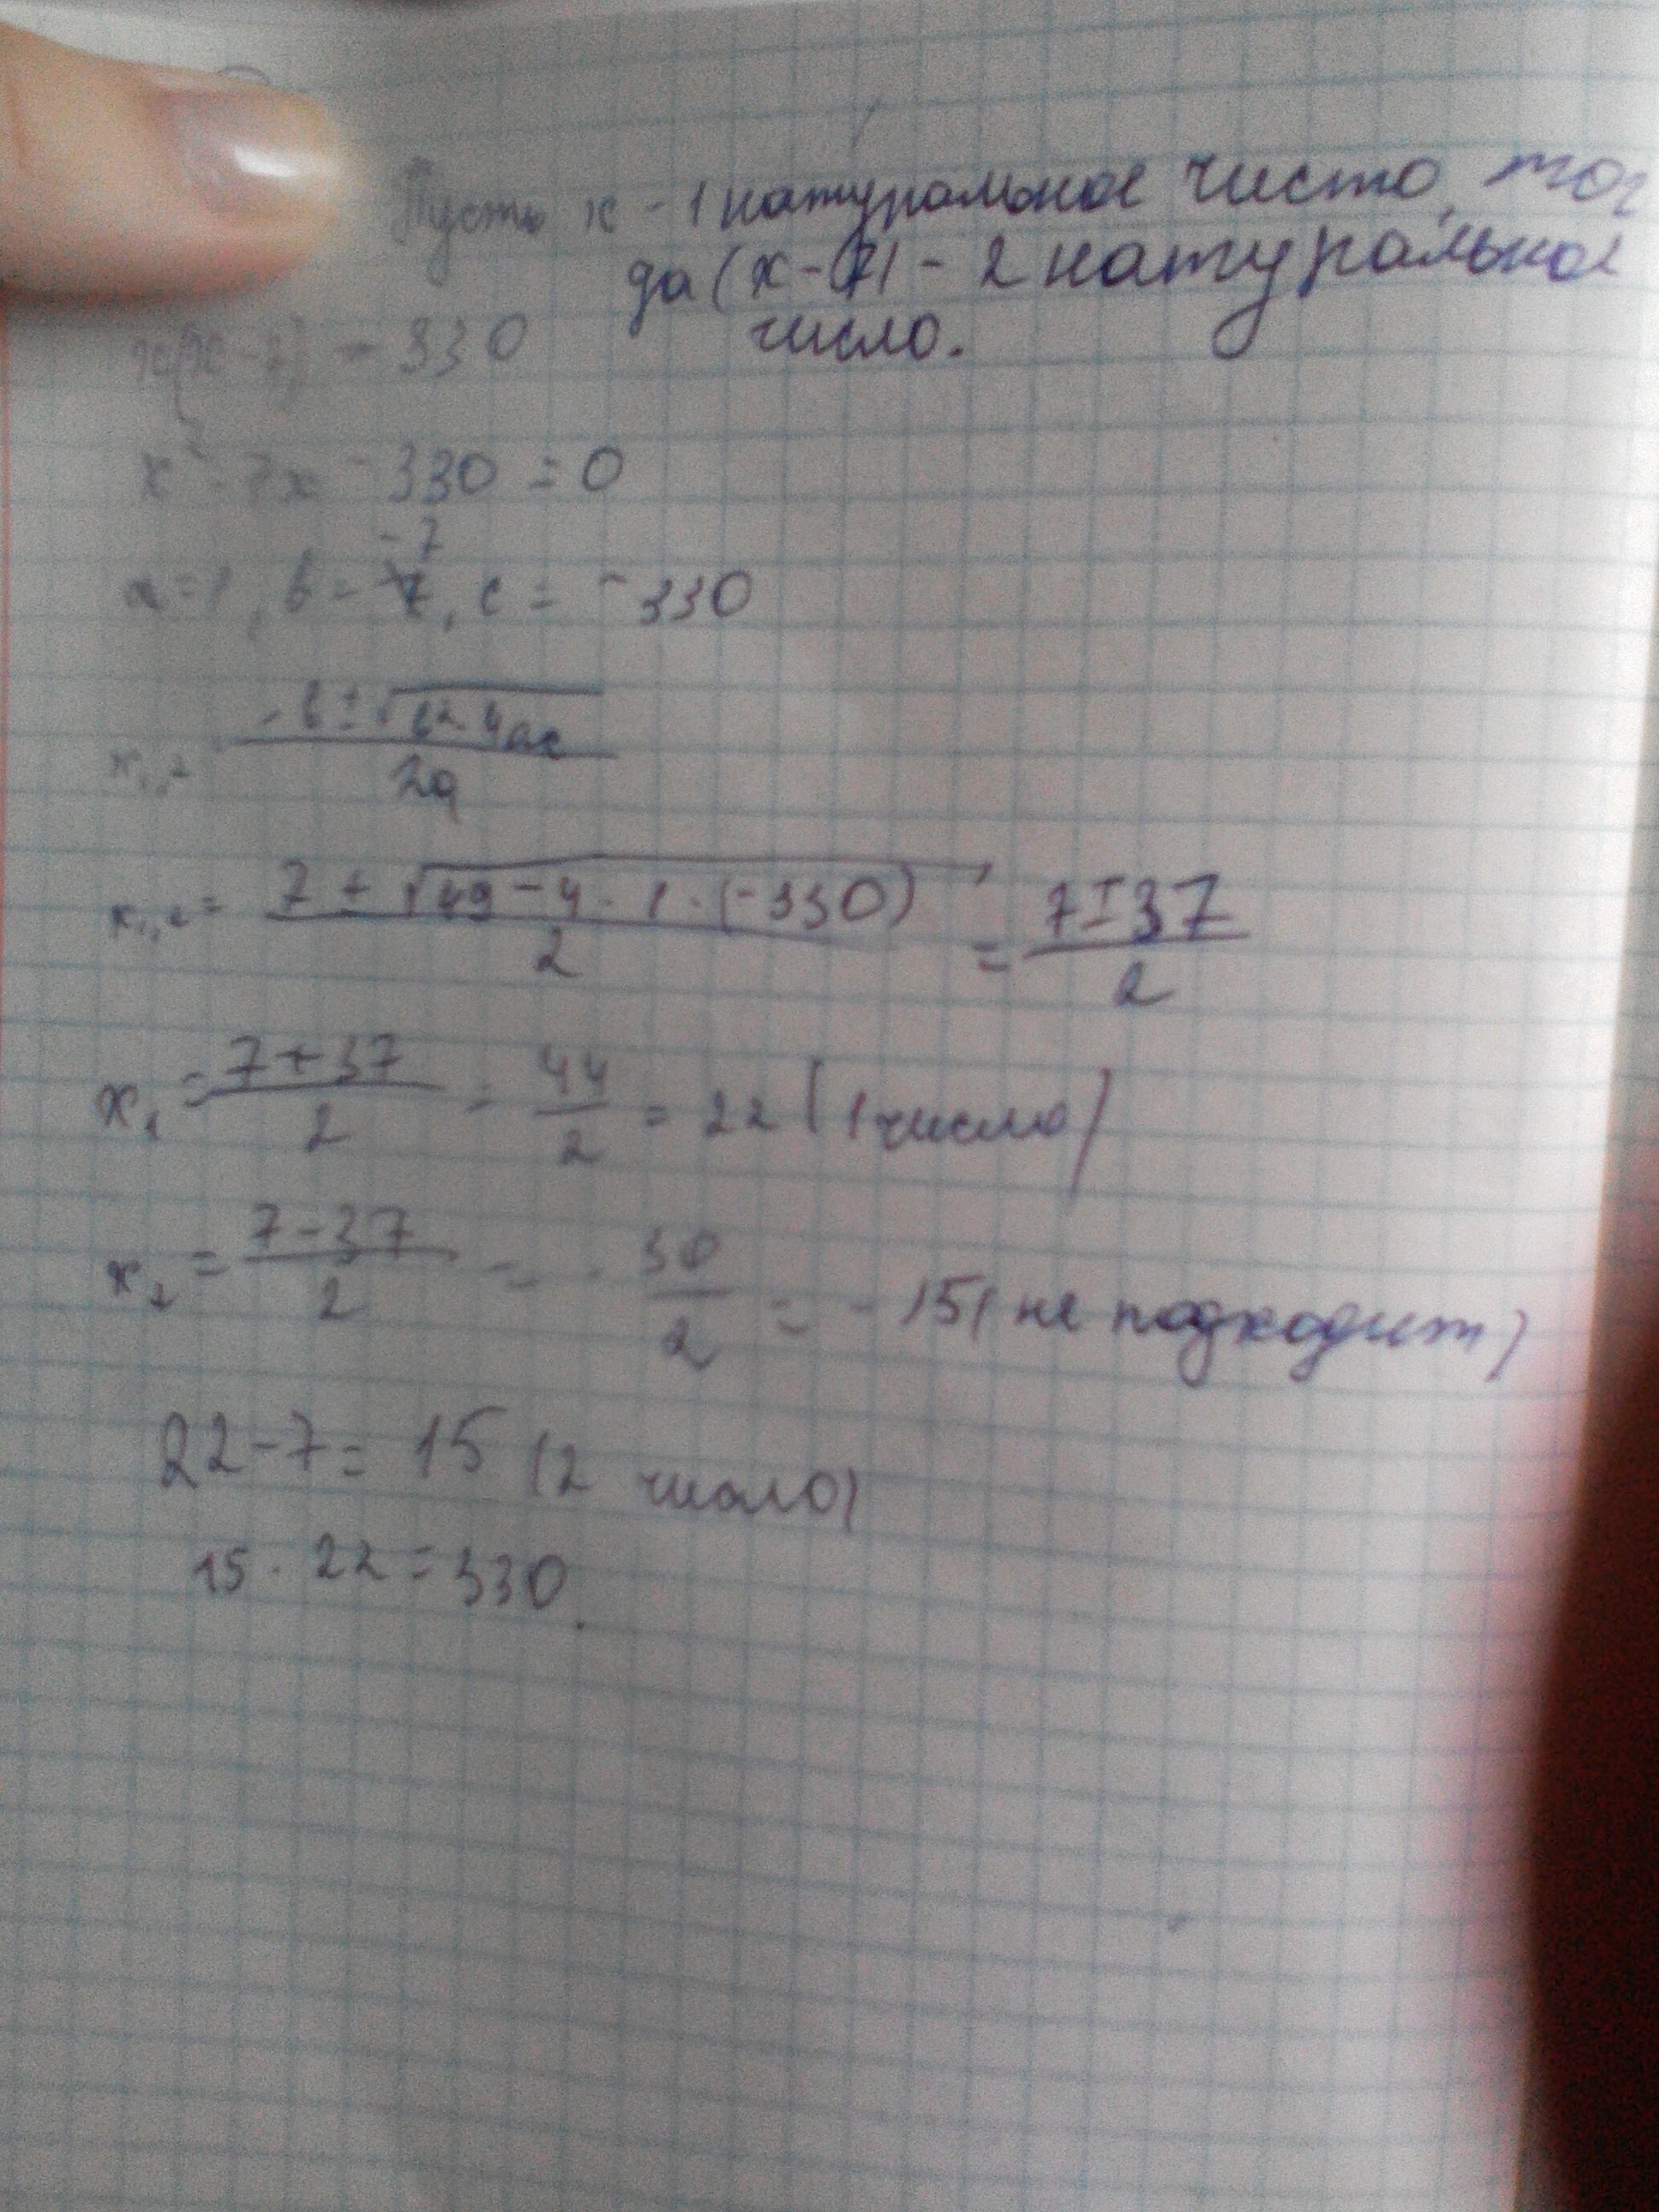 Пусть x - 1 натуральное число, тог
да (x-7) - 2 натуральное
число.
x(x-7) = 330
x² - 7x - 330 = 0
-7
a=1, b= 7, c = -330
x₁,₂ = (-b ± √(b²-4ac))/2a
x₁,₂ = (7 ± √(49-4·1·(-330)))/2 = (7±37)/2
x₁ = (7+37)/2 = 44/2 = 22 (1 число)
x₂ = (7-37)/2 = -30/2 = -15 (не подходит)
22-7= 15 (2 число)
15 · 22 = 330.